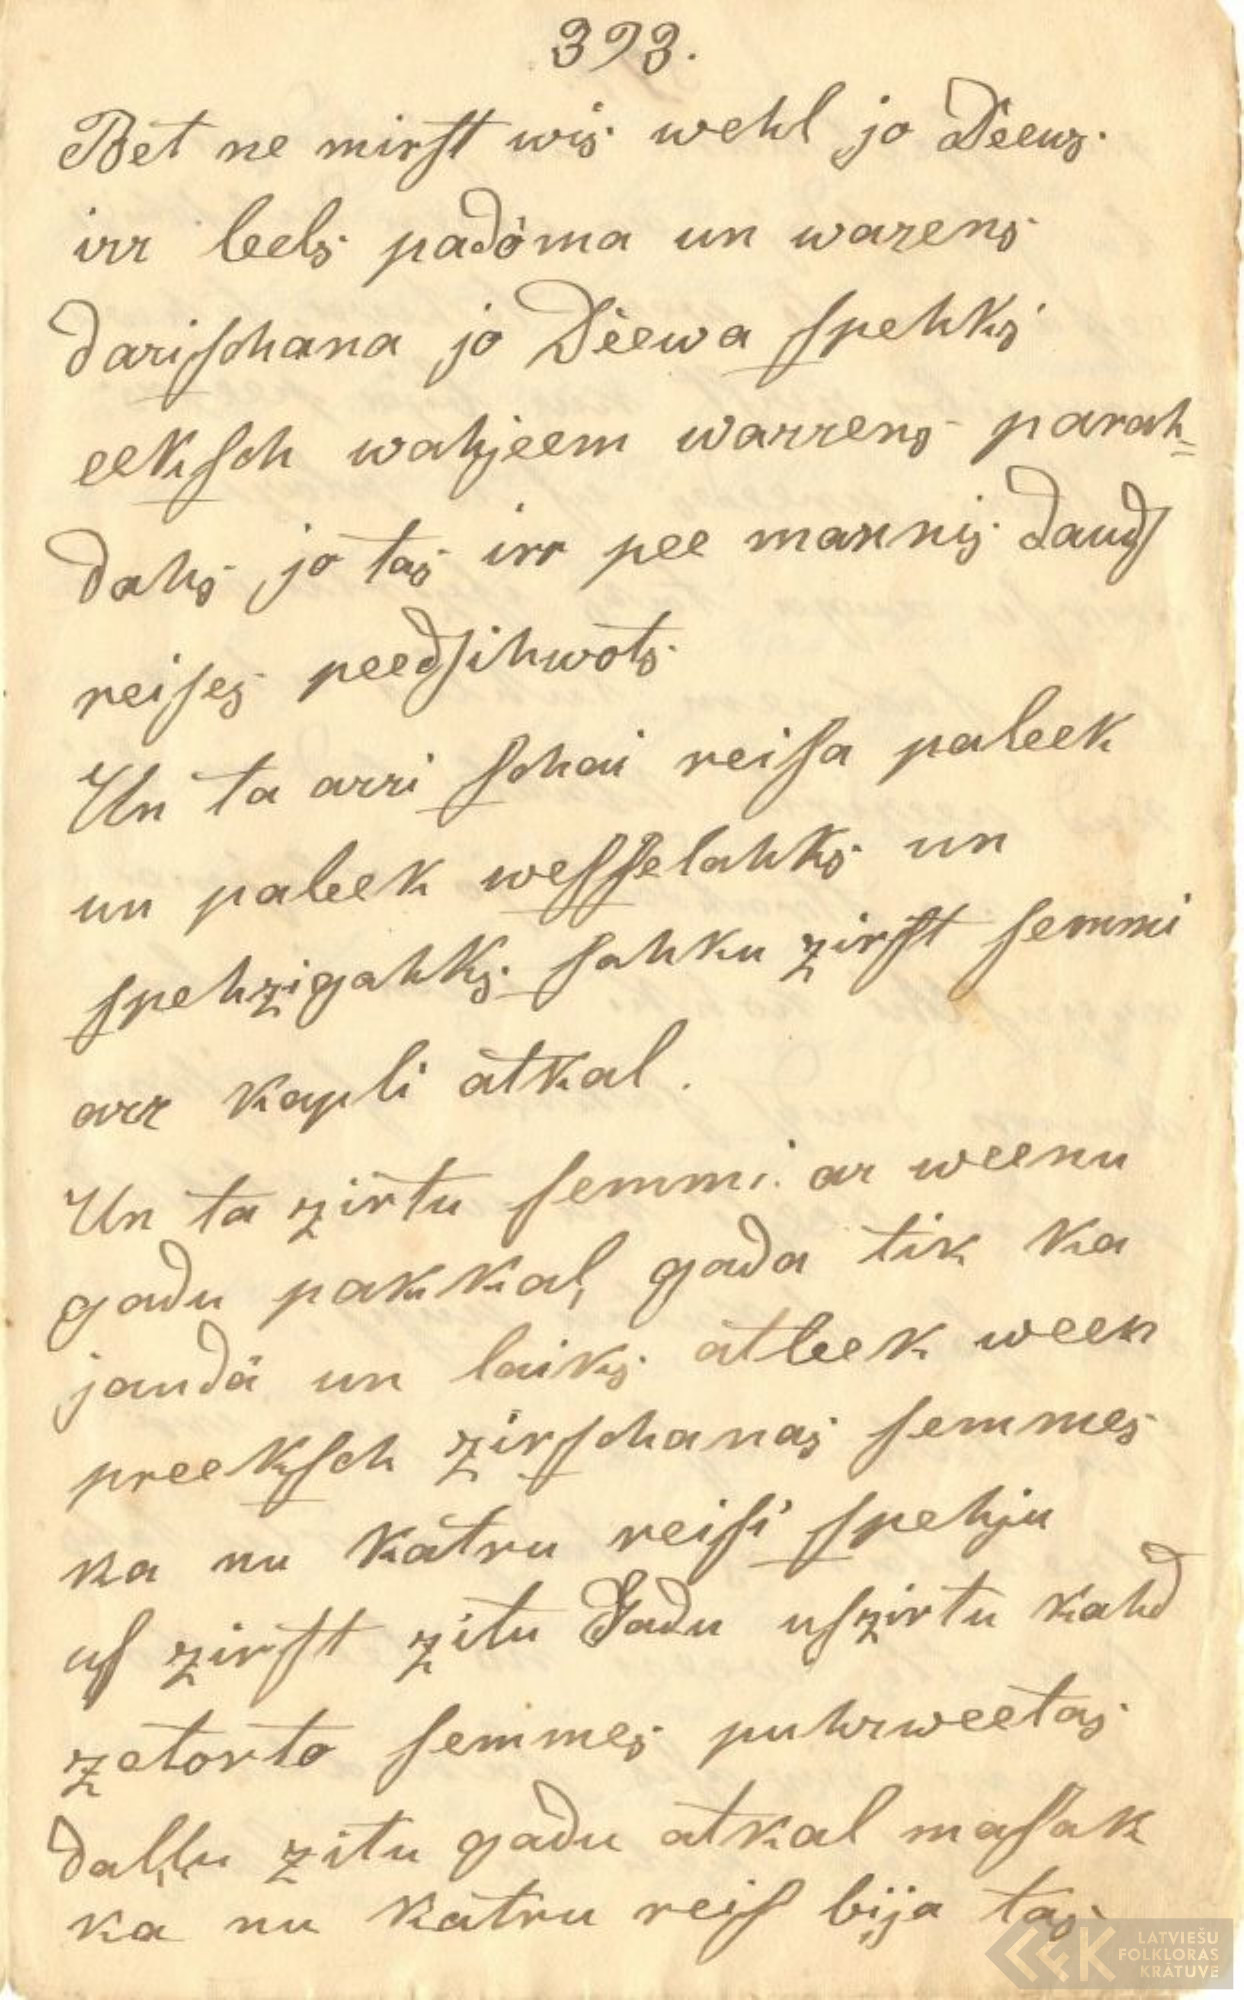 393.
Bet ne mirst wis wehl jo Deews
irr leels padoma un warens
darischana jo Deewa spehks
eeksch wahjeem warrens parah=
dahs jo tas irr pee mannis daudſ
reiſes peedſihwots
Un ta arri schai reiſa paleek
un paleek weſſelahks un
spehzigahks sahku zirst ſemmi
arr kapli atkal.
Un ta zirtu ſemmi ar weenu
gadu pakkal, gada tik ka
jaudä un laiks atleek ween
preeksch zirschanas ſemmes
ka nu katru reiſi spehju
uſ zirst zitu Gadu uſzirtu kahd
zetorto ſemmes puhrweetas
daļļu zitu gadu atkal maſak
ka nu katru reiſ bija tas
LATVIEŠU
FOLKLORAS
KRĀTUVE